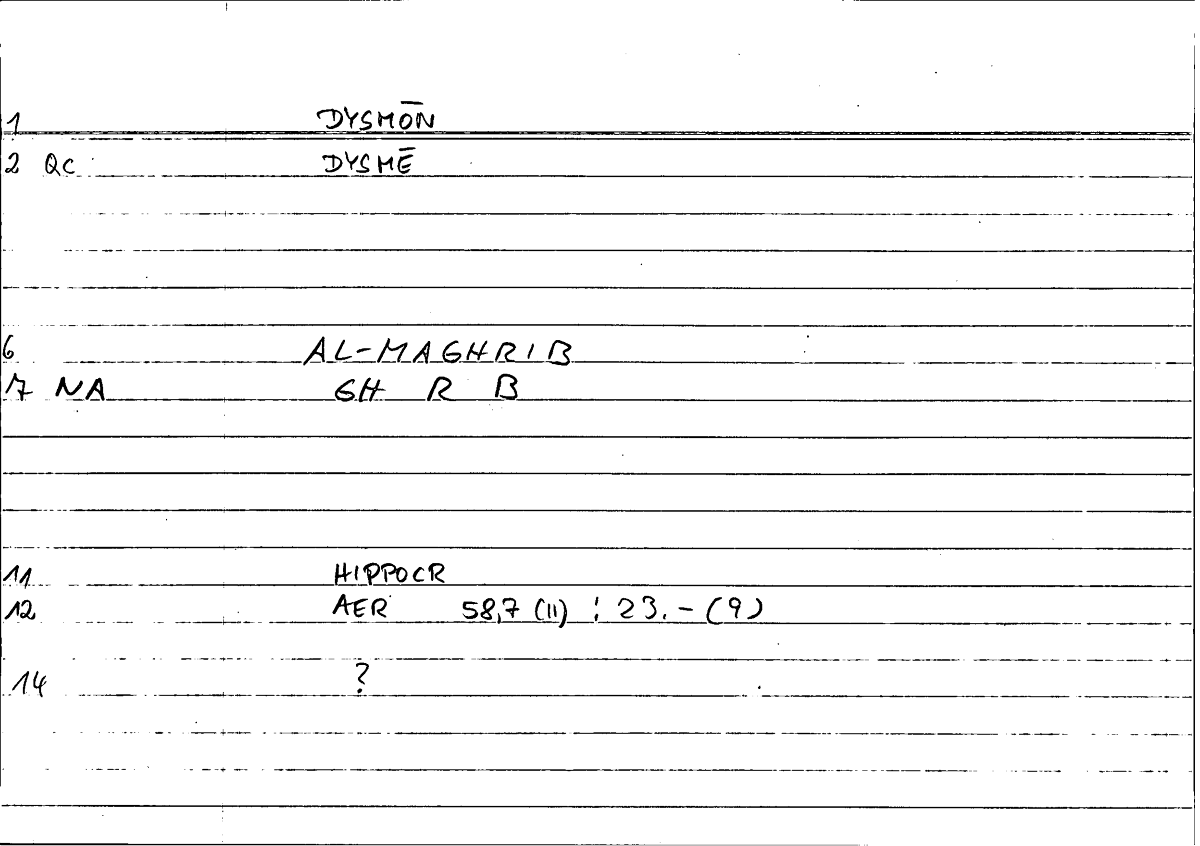 1 DYSMŌN
2 QC DYSMĒ
6 AL-MAGHRIB
7 NA GH R B
11 HIPPOCR
12 AER 58,7 (11) : 23.-(9)
14 ?